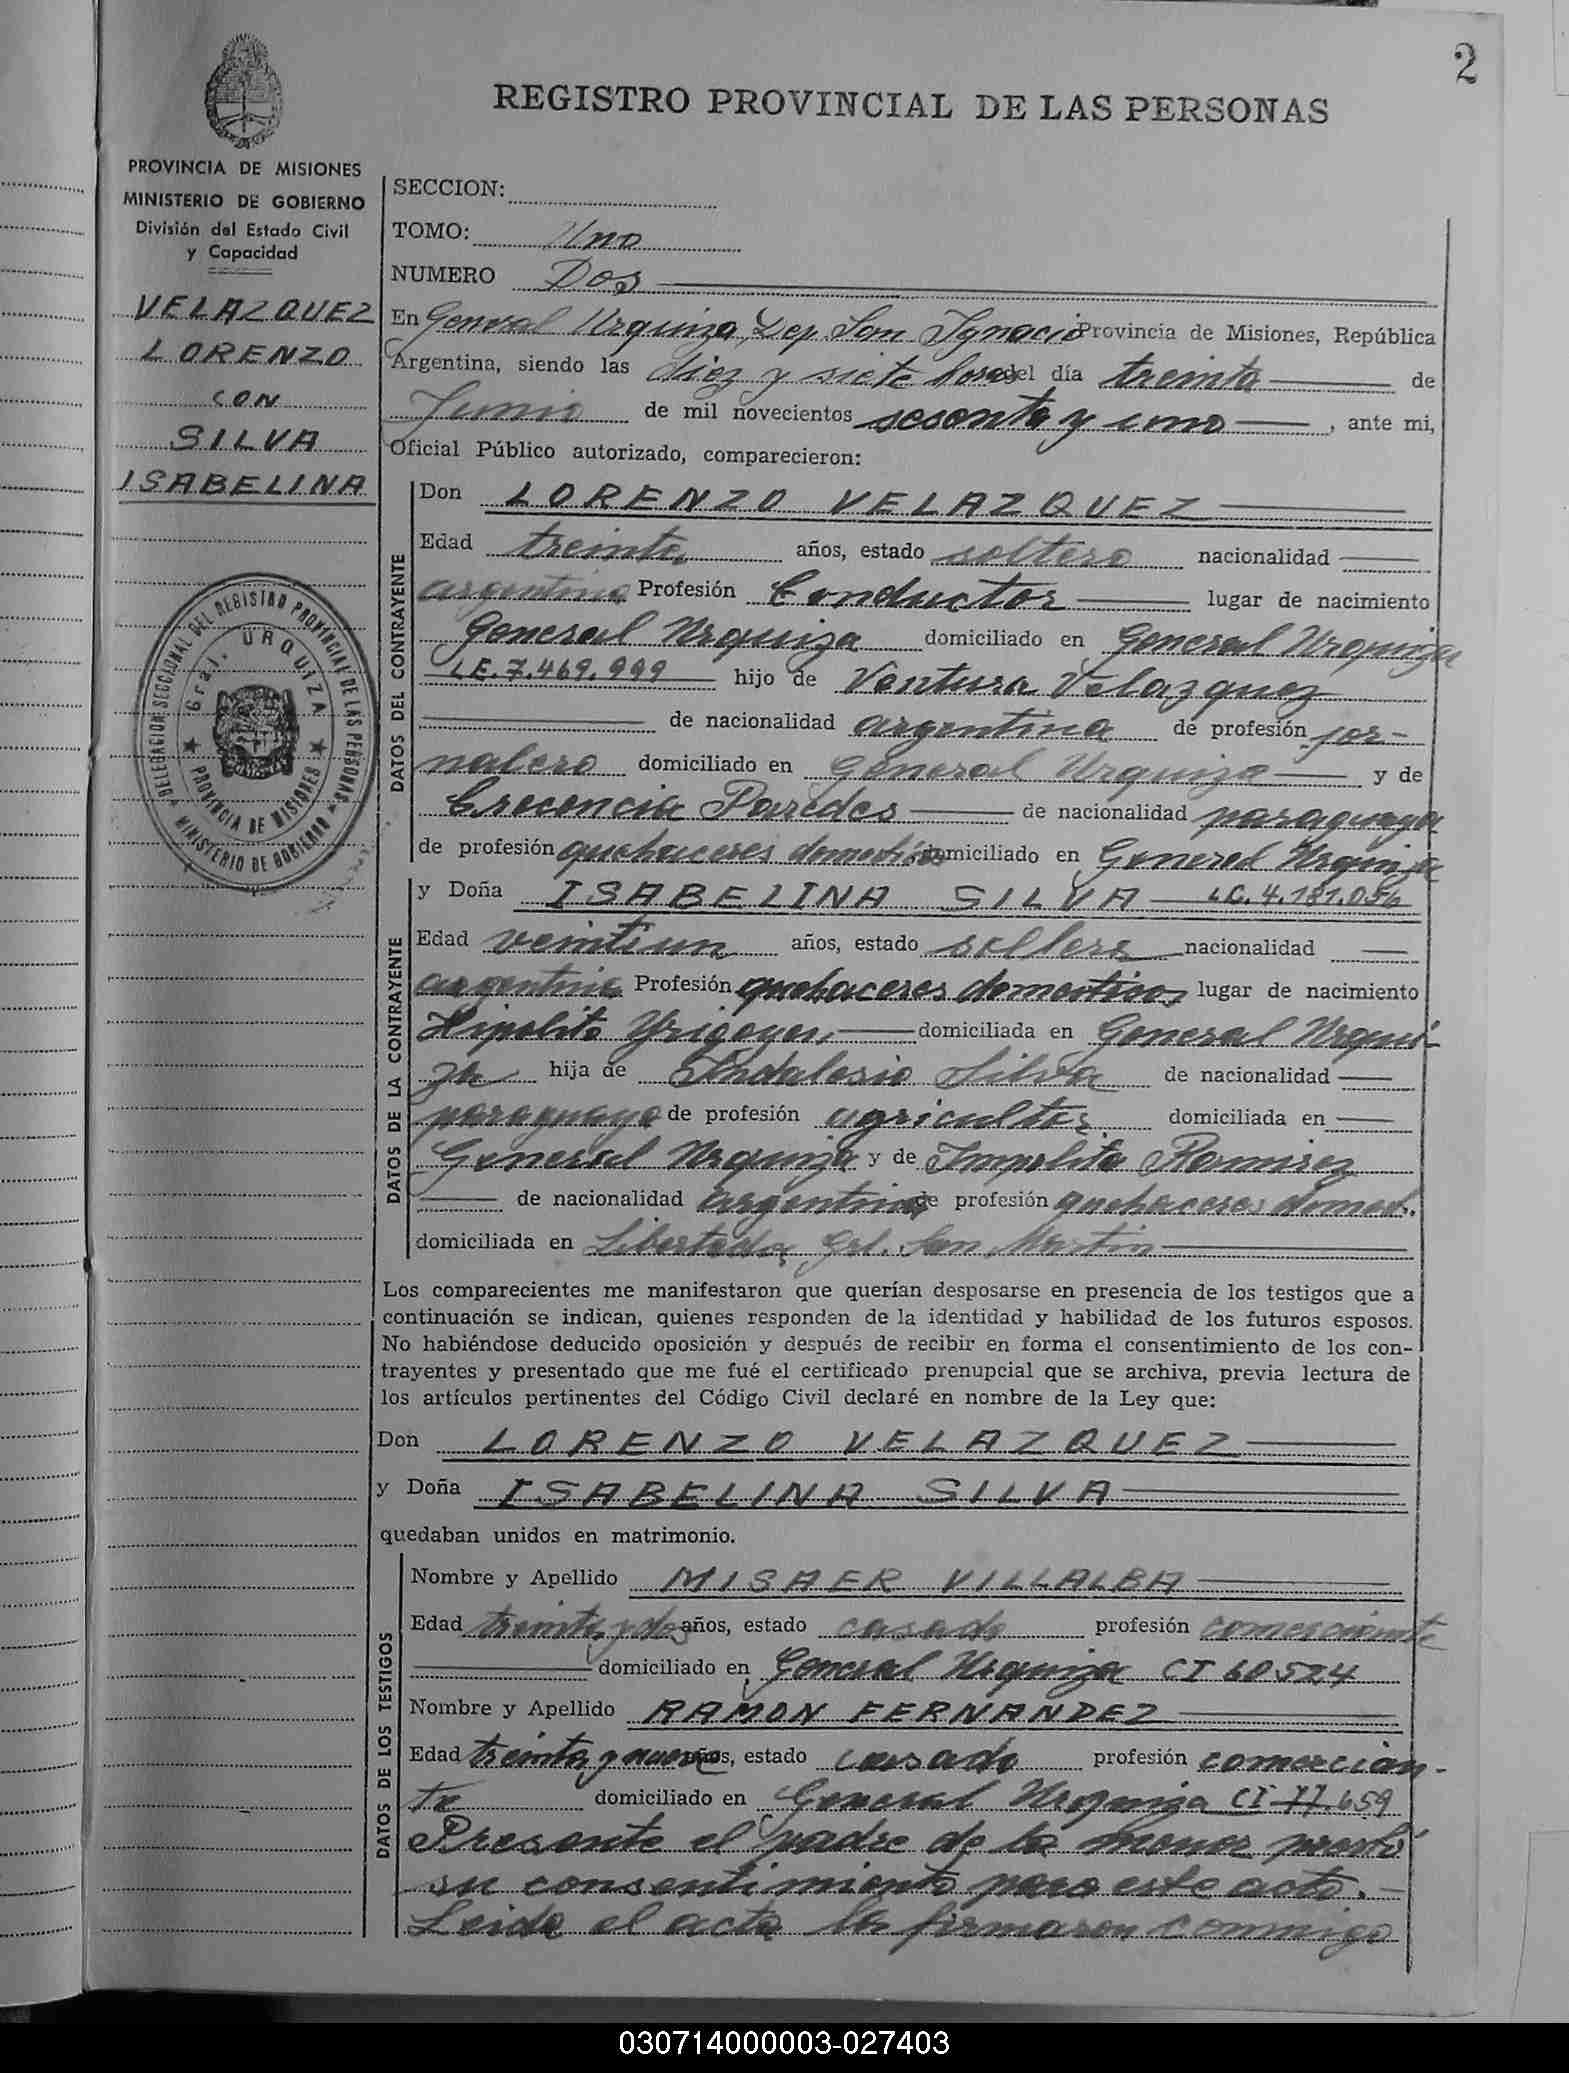 2
REGISTRO PROVINCIAL DE LAS PERSONAS
PROVINCIA DE MISIONES
MINISTERIO DE GOBIERNO
División del Estado Civil
y Capacidad
VELAZQUEZ
LORENZO
CON
SILVA
ISABELINA
DELEGACION SECCIONAL DEL REGISTRO PROVINCIAL DE LAS PERSONAS
★ MINISTERIO DE GOBIERNO ★
Gral. URQUIZA
★ PROVINCIA DE MISIONES ★
SECCION:
TOMO: Uno
NUMERO Dos
En General Urquiza, Dep. San Ignacio Provincia de Misiones, República
Argentina, siendo las diez y siete horas del día treinta de
Junio de mil novecientos sesenta y uno, ante mi,
Oficial Público autorizado, comparecieron:
DATOS DEL CONTRAYENTE
Don LORENZO VELAZQUEZ
Edad treinta años, estado soltero nacionalidad
argentina Profesión Conductor lugar de nacimiento
General Urquiza domiciliado en General Urquiza
LE. 7.469.999 hijo de Ventura Velazquez
de nacionalidad argentina de profesión jor-
nalero domiciliado en General Urquiza y de
Crecencia Paredes de nacionalidad paraguaya
de profesión quehaceres domesticos domiciliado en General Urquiza
DATOS DE LA CONTRAYENTE
y Doña ISABELINA SILVA LC. 4.181.056
Edad veintiun años, estado soltera nacionalidad
argentina Profesión quehaceres domesticos lugar de nacimiento
Hipolito Yrigoyen, domiciliada en General Urqui-
za hija de Indalesio Silva de nacionalidad
paraguaya de profesión agricultor domiciliada en
General Urquiza y de Impolita Ramirez
de nacionalidad argentina de profesión quehaceres domest.
domiciliada en Libertador Gral. San Martin
Los comparecientes me manifestaron que querían desposarse en presencia de los testigos que a
continuación se indican, quienes responden de la identidad y habilidad de los futuros esposos.
No habiéndose deducido oposición y después de recibir en forma el consentimiento de los con-
trayentes y presentado que me fué el certificado prenupcial que se archiva, previa lectura de
los artículos pertinentes del Código Civil declaré en nombre de la Ley que:
Don LORENZO VELAZQUEZ
y Doña ISABELINA SILVA
quedaban unidos en matrimonio.
DATOS DE LOS TESTIGOS
Nombre y Apellido MISAER VILLALBA
Edad treinta y dos años, estado casado profesión comerciante
domiciliado en General Urquiza CI 60524
Nombre y Apellido RAMON FERNANDEZ
Edad treinta y nueve años, estado casado profesión comercian-
te domiciliado en General Urquiza CI 77.659
Presente el padre de la menor prestó
su consentimiento para este acto.
Leida el acta la firmaron conmigo
030714000003-027403